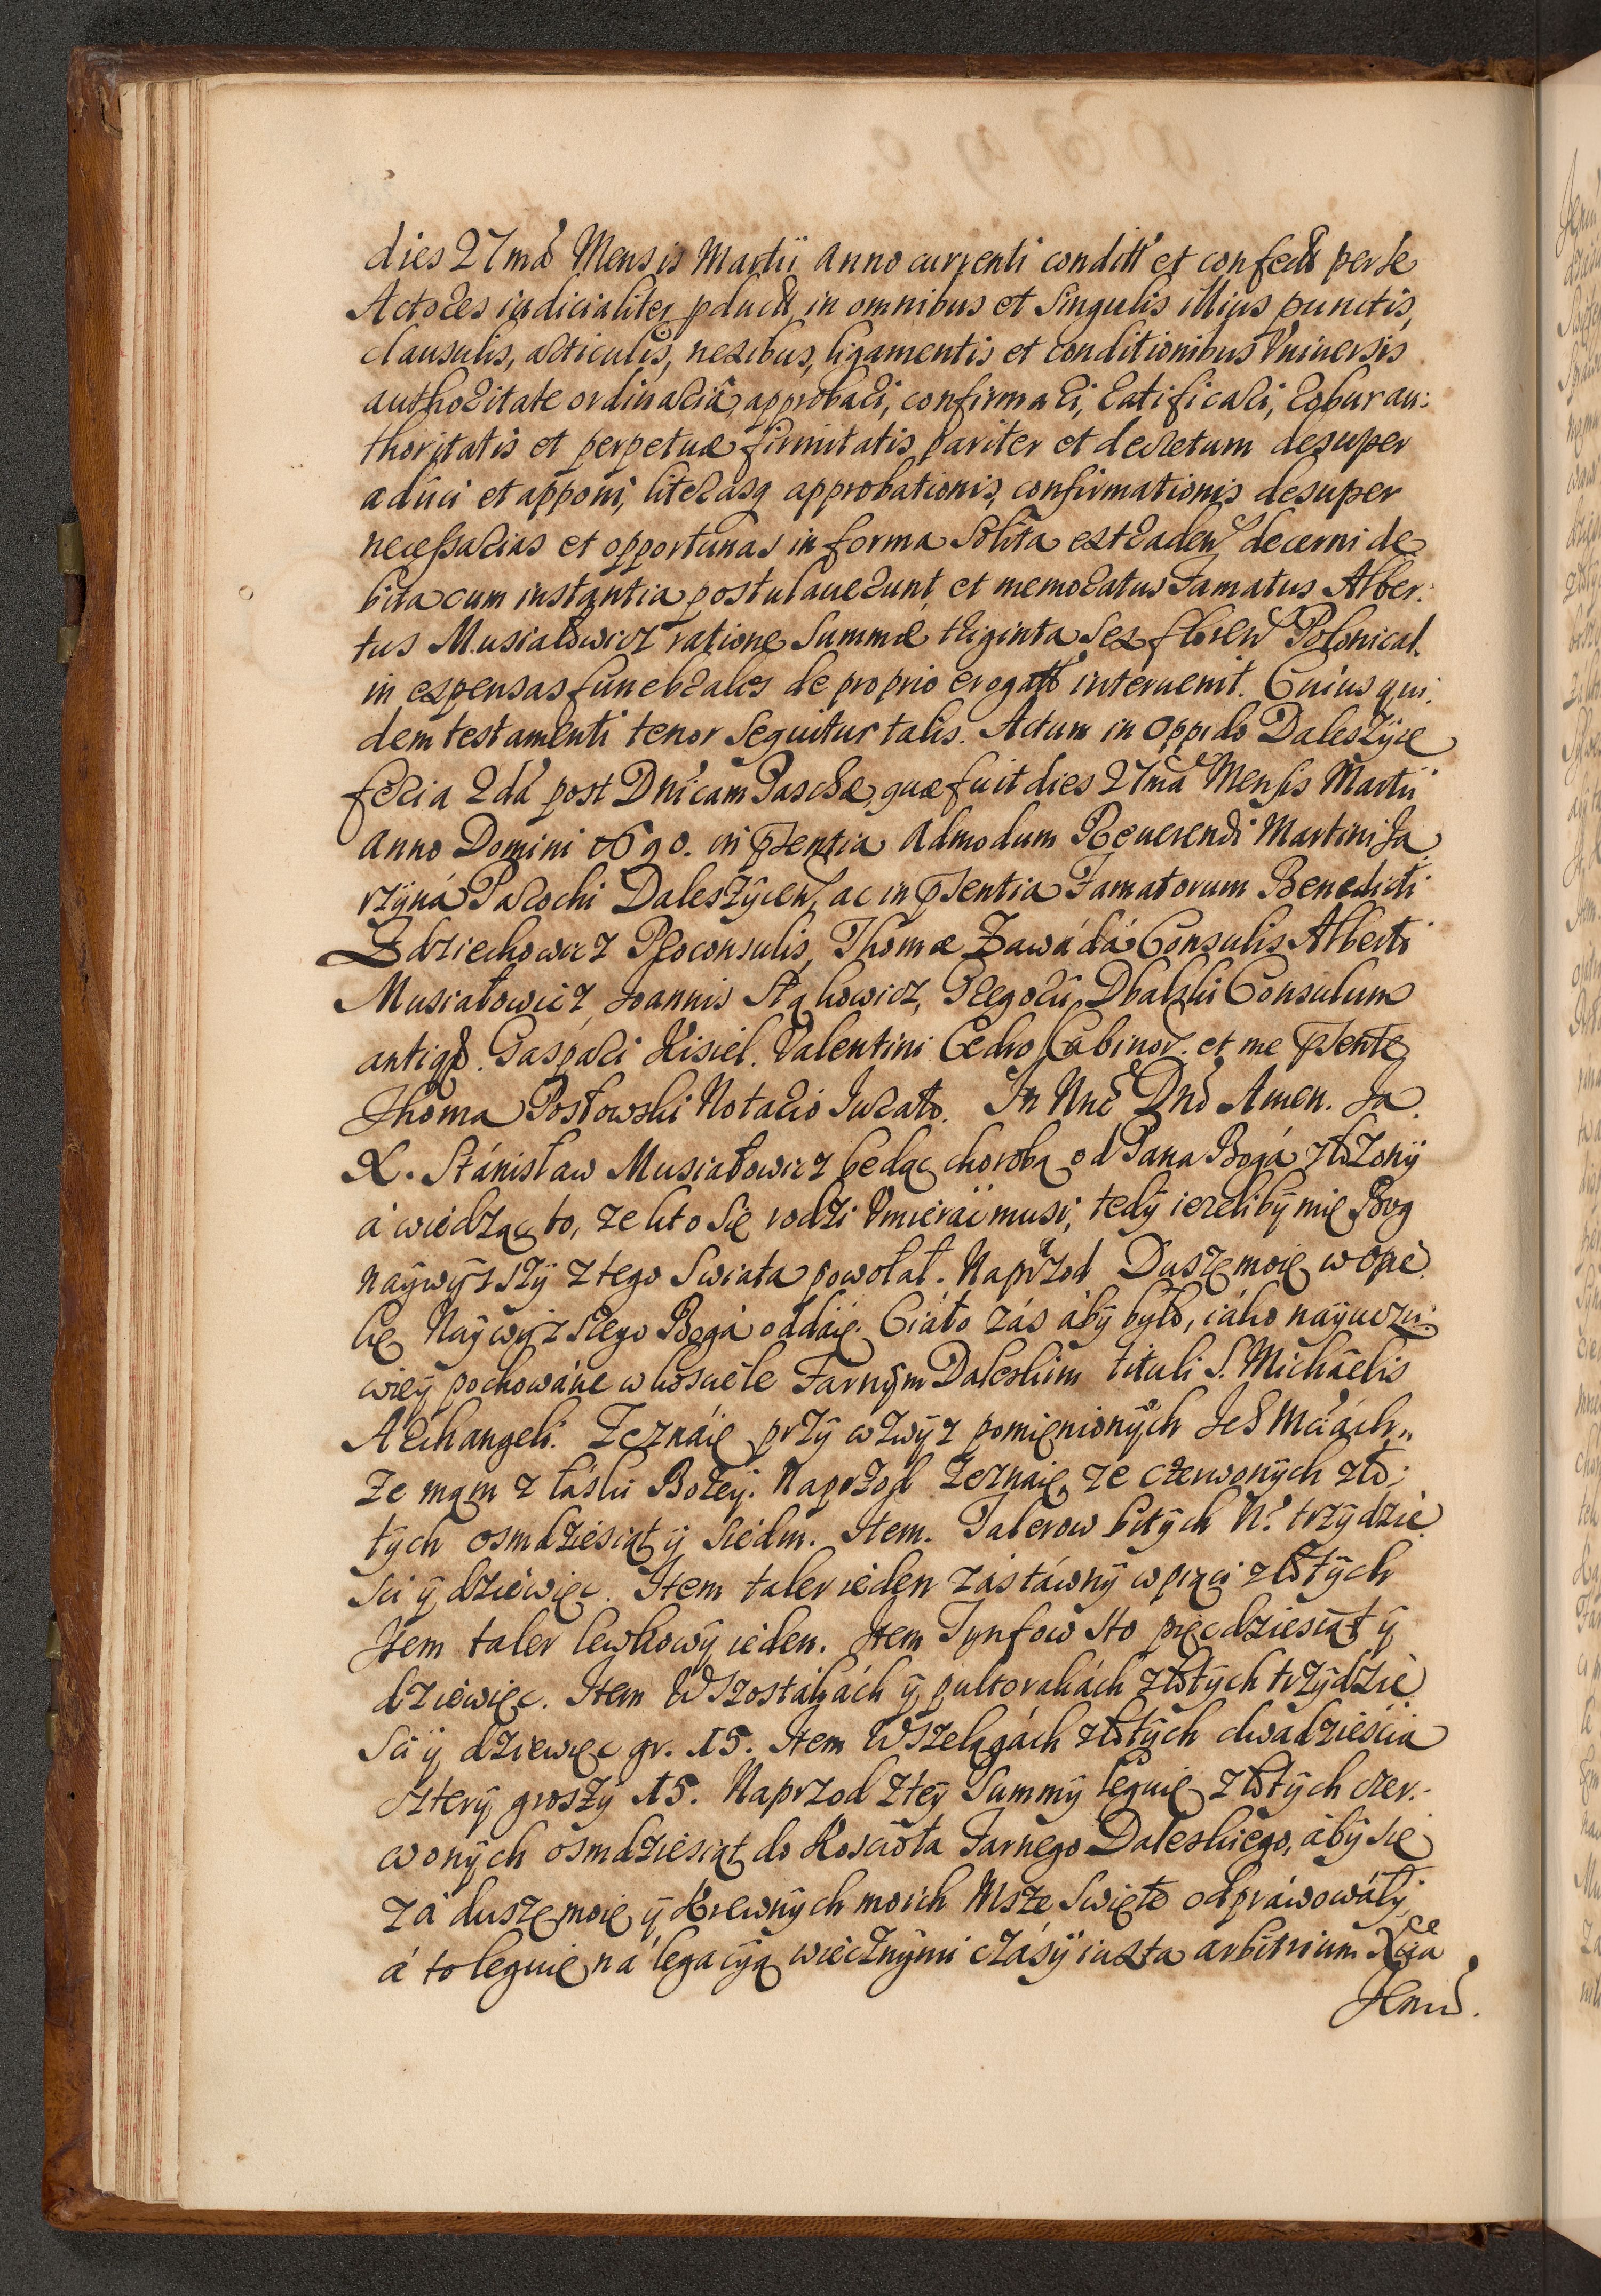 dies 27ma Mensis Martii Anno currenti conditt et confectt per se
Actores iudicialiter pductt, in omnibus et singulis illius punctis,
clausulis, articulis, nexibus, ligamentis et conditionibus Vniuersis
authoritate ordinaria, approbari, confirmari, ratificari, robur au:
thoritatis et perpetuæ firmitatis pariter et decretum desuper
aduci et apponi, literasq approbationis, confirmationis desuper
necessarias et opportunas in forma solita extraden decerni de
bita cum instantia postulauerunt, et memoratus Famatus Alber:
tus Musiałowicz ratione Summæ triginta sex floren Polonical.
in expensas funebrales de proprio erogatt interuenit. Cuius qui:
dem testamenti tenor sequitur talis. Actum in Oppido Daleszyce
feria 2da post Dnicam Paschæ, quæ fuit dies 27ma Mensis Martii
Anno Domini 1690. in Psentia Admodum Reuerendi Martini Ja
rzyna Parochi Daleszycen, ac in Psentia Famatorum Benedicti
Zdziechowicz Proconsulis, Thomæ Zawáda Consulis Alberti
Musiałowicz, Joannis Stąkowicz, Gregorii Dbalski Consulum
antiqr. Gaspari Kisiel. Valentini Cedro Scabinor. et me Psente
Thoma Postowski Notario Jurato. In Nne Dni Amen. Ja
X. Stánisław Musiałowicz będąc chorobą od Pana Bogá złożony
á wiedząc to, ze kto się rodzi Vmieráć musi, tedy iezeliby mię Bog
naywyzszy z tego Swiata powołał. Naprzod Duszę moię w opie
kę Naywyzszego Bogá oddáię. Ciáło zás áby było, iáko nayuczci
wiey pochowáne w kosciele Farnym Daleskim tituli S. Michaelis
Archangeli. Zeznáię przy wzwyz pomięnionych Jch Mciách,,
Ze mąm z łáski Bozey. Naprzod Zeznaię, ze czerwonych zło:
tych osmdziesiąt y siedm. Item. Talerow bitych No. trzydzie
sci y dziewięc. Item taler ieden zástáwny w pięci złotych
Item taler lewkowy ieden. Item Tynfow sto pięcdziesiąt y
dziewięc. Item W szostákách y pułtorakách złotych trzydzie
sci y dziewięc gr. 15. Item W szelągách złotych dwadziescia
cztery groszy 15. Naprzod z tey Summy leguię złotych czer:
wonych osmdziesiąt do Kosciołá Farnego Daleskiego, áby się
zá duszę moię y Krewnych moich Msze Swięte odpráwowáły,
á to leguię ná legacyą wiecznymi czásy iuxta arbitrium Xcia